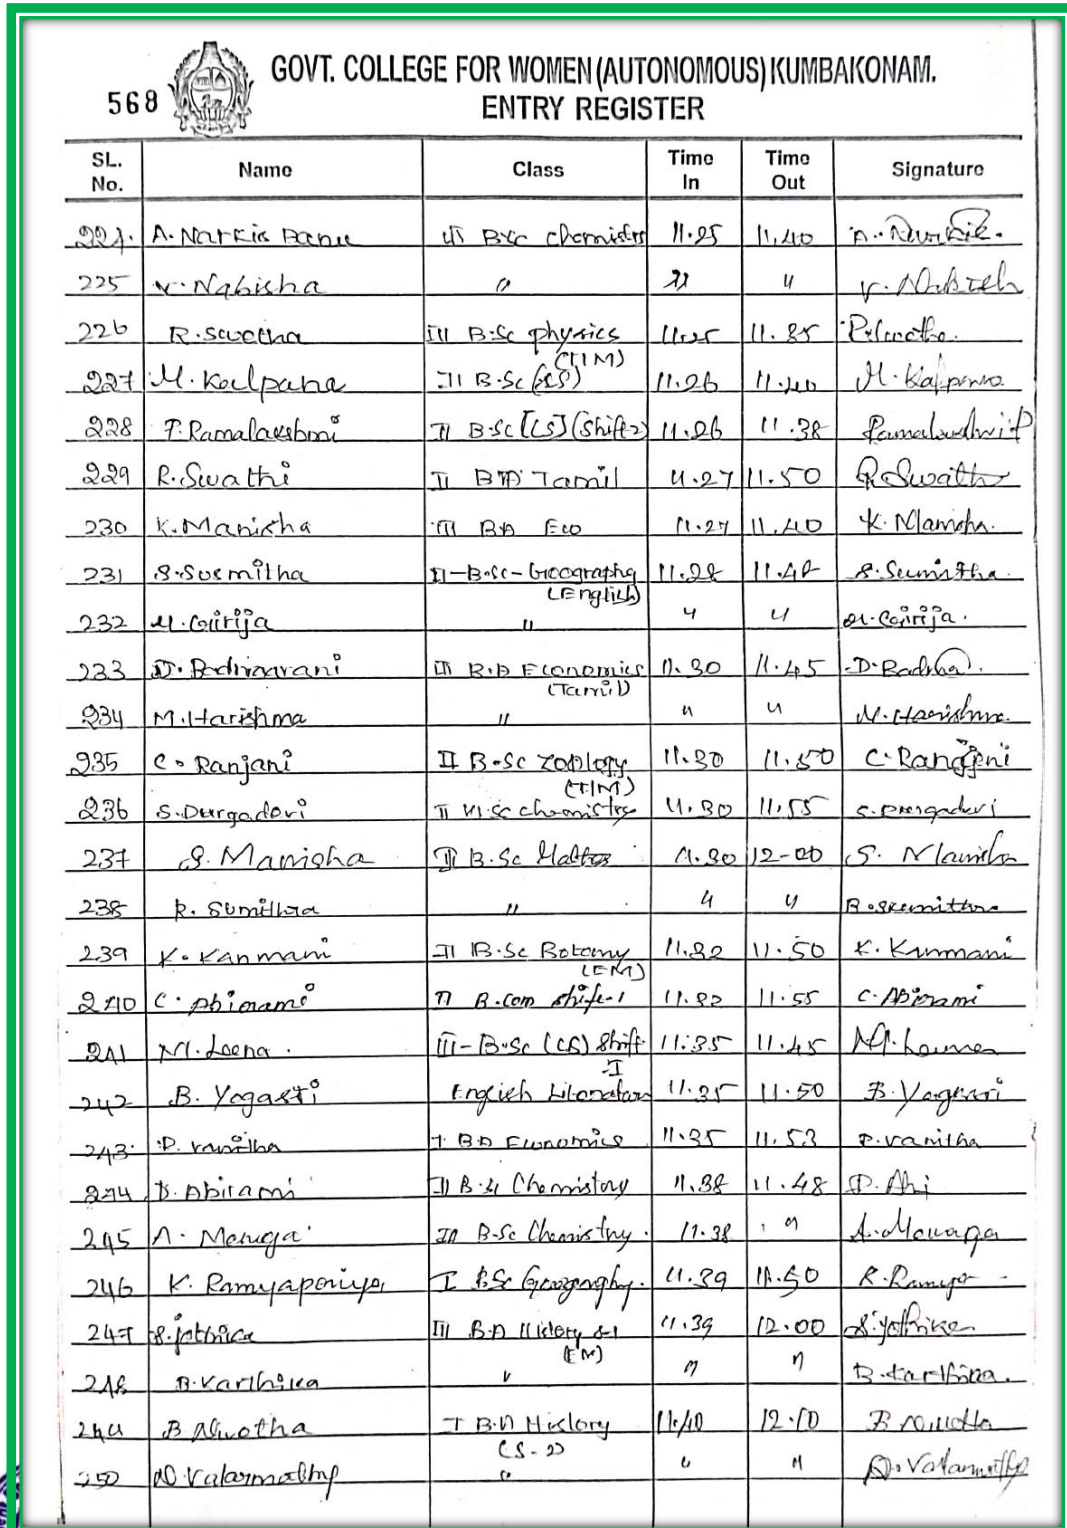 GOVT. COLLEGE FOR WOMEN (AUTONOMOUS) KUMBAKONAM.
568
ENTRY REGISTER
SL. No. Name Class Time In Time Out Signature
224. A. Narkis Banu III BSc chemistry 11.25 11.40
225 V. Nabisha " " " V. Nabish
226 R. Swetha III B.Sc physics 11.25 11.35 R. Swetha.
(TM)
227 M. Kalpana II B.Sc (CS) 11.26 11.40 M. Kalpana
228 P. Ramalakshmi II B.Sc [CS] (Shift 2) 11.26 11.38 Ramalakshmi P
229 R. Swathi II BA Tamil 11.27 11.50 R Swathi
230 K. Manisha III BA Eco 11.27 11.40 K. Manisha.
231 S. Susmitha II-B.Sc-Geography 11.28 11.48 S. Susmitha
(English)
232 M. Girija " " " M. Girija.
233 D. Badhrarani III B.A Economics 11.30 11.45 D. Badhra.
(Tamil)
234 M. Harishma " " " M. Harishma.
235 C. Ranjani II B.Sc Zoology 11.30 11.50 C. Ranjani
(TM)
236 S. Durgadevi II M.Sc chemistry 11.30 11.55 S. Durgadevi
237 S. Manisha III B.Sc Maths 11.30 12-00 S. Manisha
238 R. Sumithra " " " R. Sumithra
239 K. Kanmani II B.Sc Botany 11.32 11.50 K. Kanmani
(EM)
240 C. Abirami II B.Com shift-1 11.32 11.55 C. Abirami
241 M. Leena. III-B.Sc (CS) Shift 11.35 11.45 M. Leena
-I
242 B. Yogasri English Literature 11.35 11.50 B. Yogasri
243. P. Vanitha I BA Economics 11.35 11.53 P. Vanitha
244 D. Abirami II B.Sc Chemistry 11.38 11.48 D. Abi
245 A. Menaga III B.Sc Chemistry. 11.38 " A. Menaga
246 K. Ramyapriya I B.Sc Geography. 11.39 11.50 K. Ramya
247 S. jothika III B.A History S-1 11.39 12.00 S. Jothika
(EM)
248 B. Karthika " " " B. Karthika.
249 B Nivetha I B.A History 11.40 12.10 B Nivetha
(S-2)
250 D. Valarmathy " " " D. Valarmathy